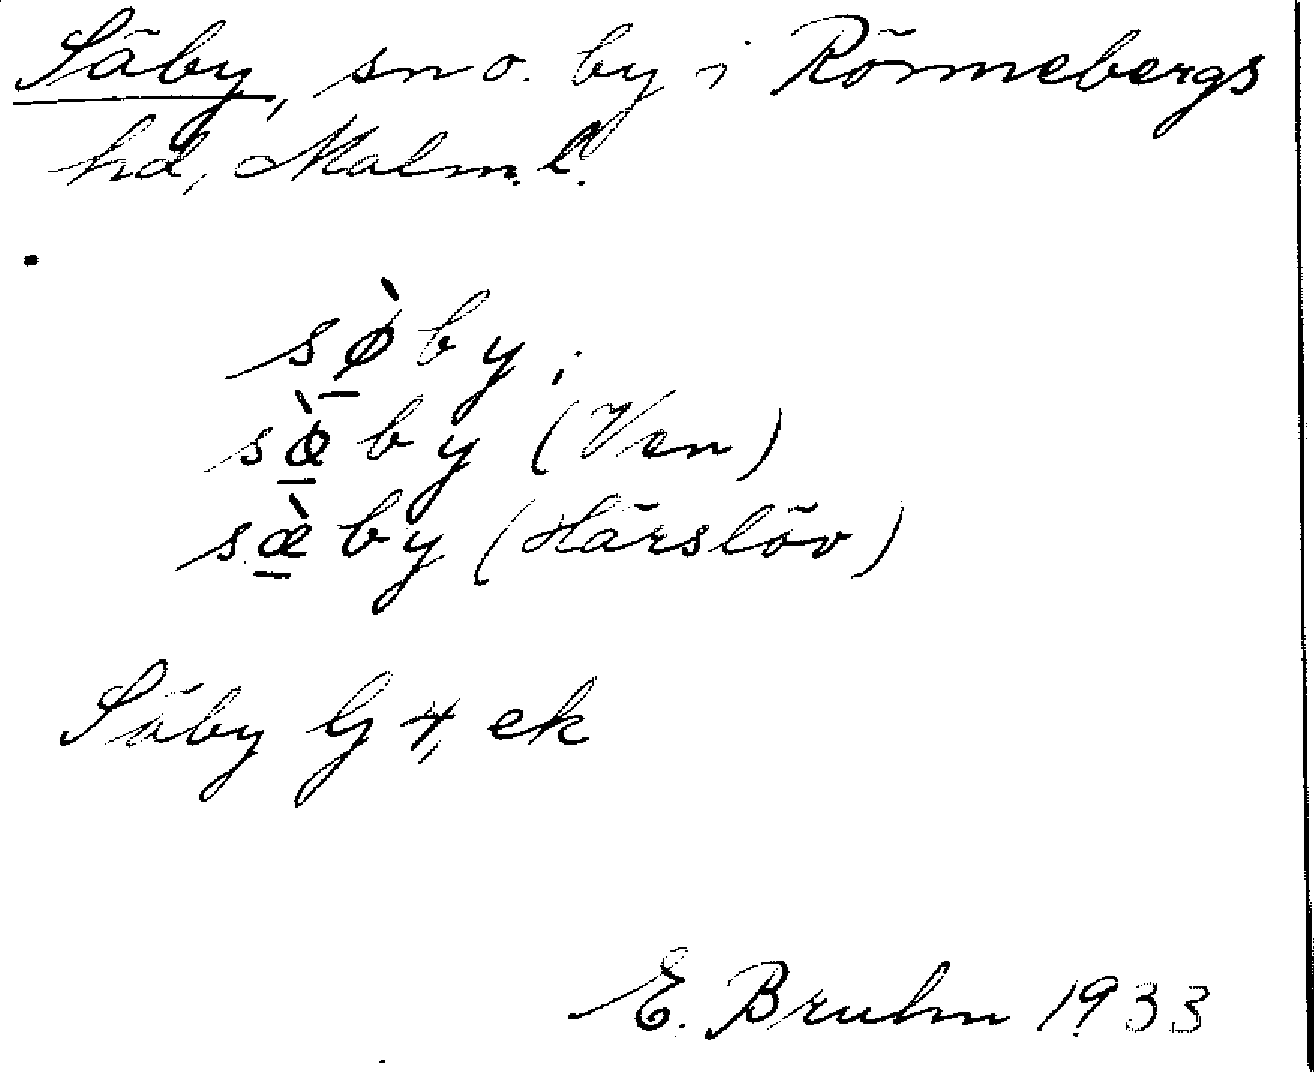 Säby, sn o. by i Rönnebergs
hd, Malm. l.
sø̠̀by,
sœ̠̀by (Ven)
sæ̠̀by (Härslöv)
Säby G 4, ek
E. Bruhn 1933